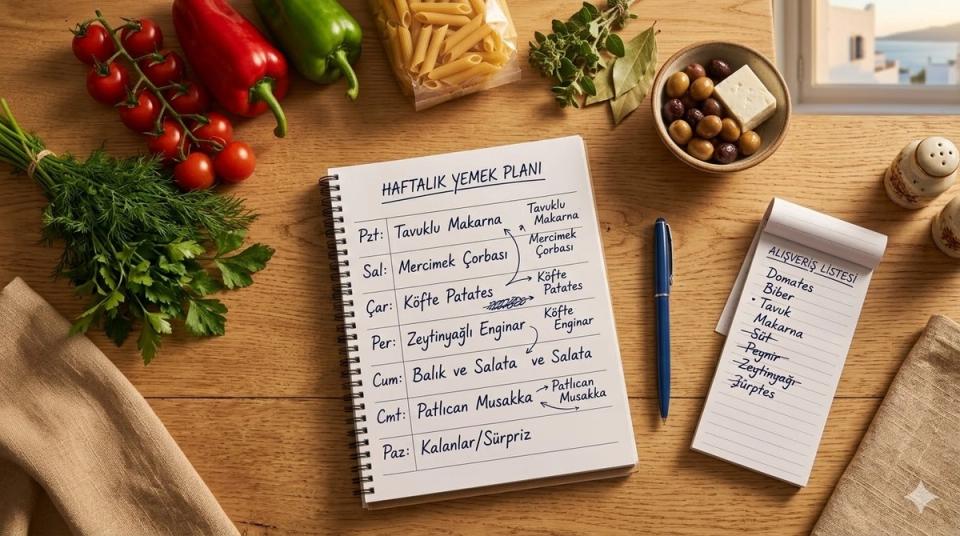 HAFTALIK YEMEK PLANI
Pzt: Tavuklu Makarna
Tavuklu
Makarna
Sal: Mercimek Çorbası
Mercimek
Çorbası
Çar: Köfte Patates
Köfte
Patates
Per: Zeytinyağlı Enginar
Köfte
Enginar
Cum: Balık ve Salata ve Salata
Cmt: Patlıcan Musakka
Patlıcan
Musakka
Paz: Kalanlar/Sürpriz
ALIŞVERİŞ LİSTESİ
Domates
Biber
• Tavuk
Makarna
Süt
Peynir
Zeytinyağı